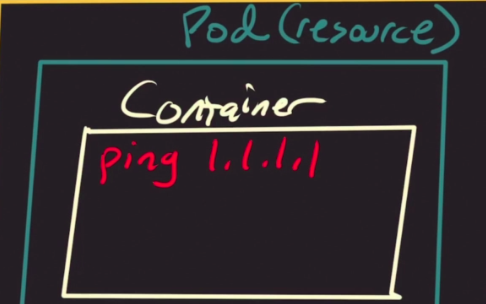 Pod (resource)
Container
ping 1.1.1.1